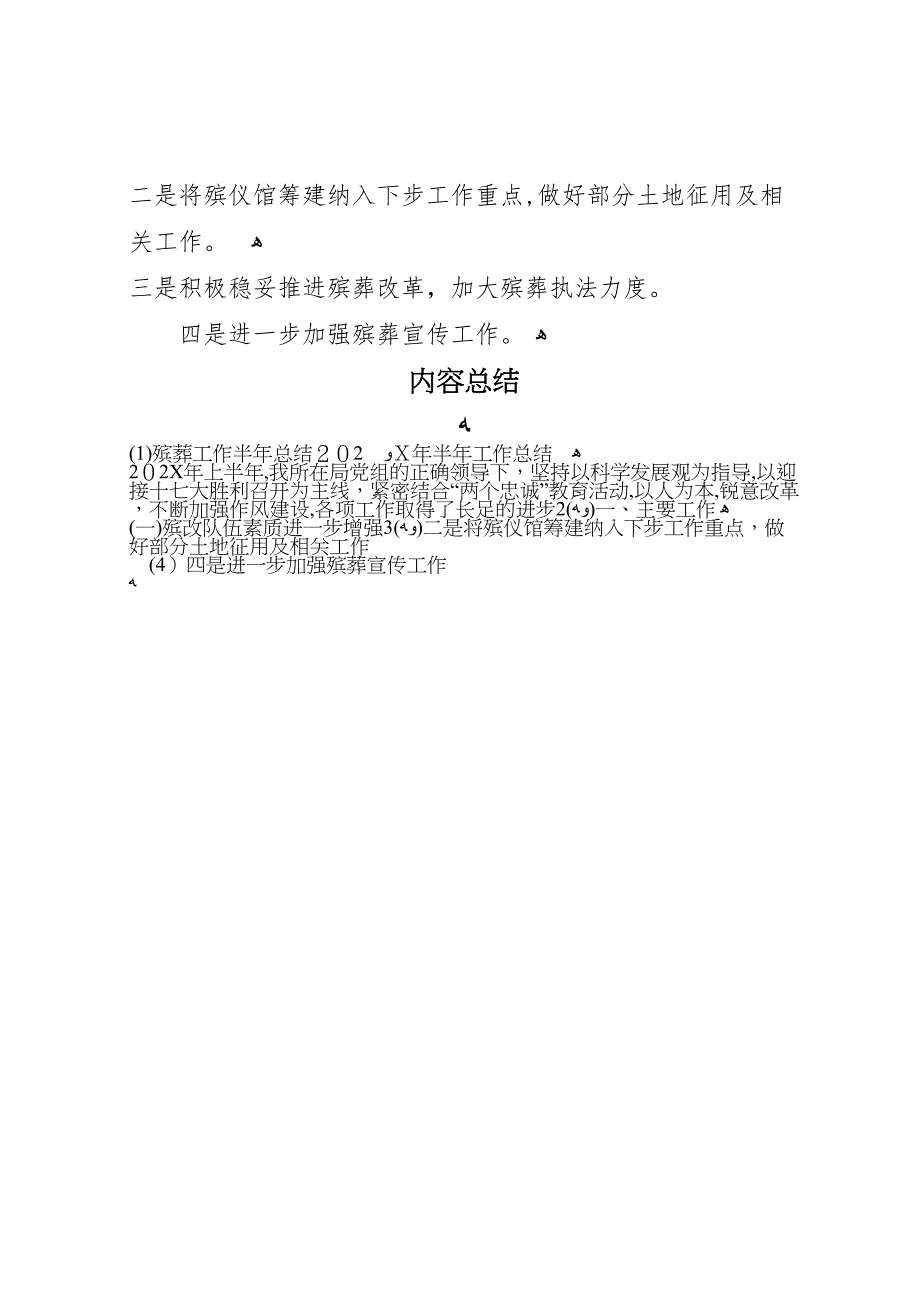 二是将殡仪馆筹建纳入下步工作重点,做好部分土地征用及相
关工作。 ﻫ
三是积极稳妥推进殡葬改革，加大殡葬执法力度。
四是进一步加强殡葬宣传工作。 ﻫ
内容总结
ﻪ
(1)殡葬工作半年总结２０2 وＸ年半年工作总结 ﻫ
2０2X年上半年,我所在局党组的正确领导下，坚持以科学发展观为指导,以迎
接十七大胜利召开为主线，紧密结合“两个忠诚”教育活动,以人为本,锐意改革
，不断加强作风建设,各项工作取得了长足的进步2(وﻪ)一、主要工作 ﻫ
(一)殡改队伍素质进一步增强3(وﻪ)二是将殡仪馆筹建纳入下步工作重点，做
好部分土地征用及相关工作
(4）四是进一步加强殡葬宣传工作
ﻪ